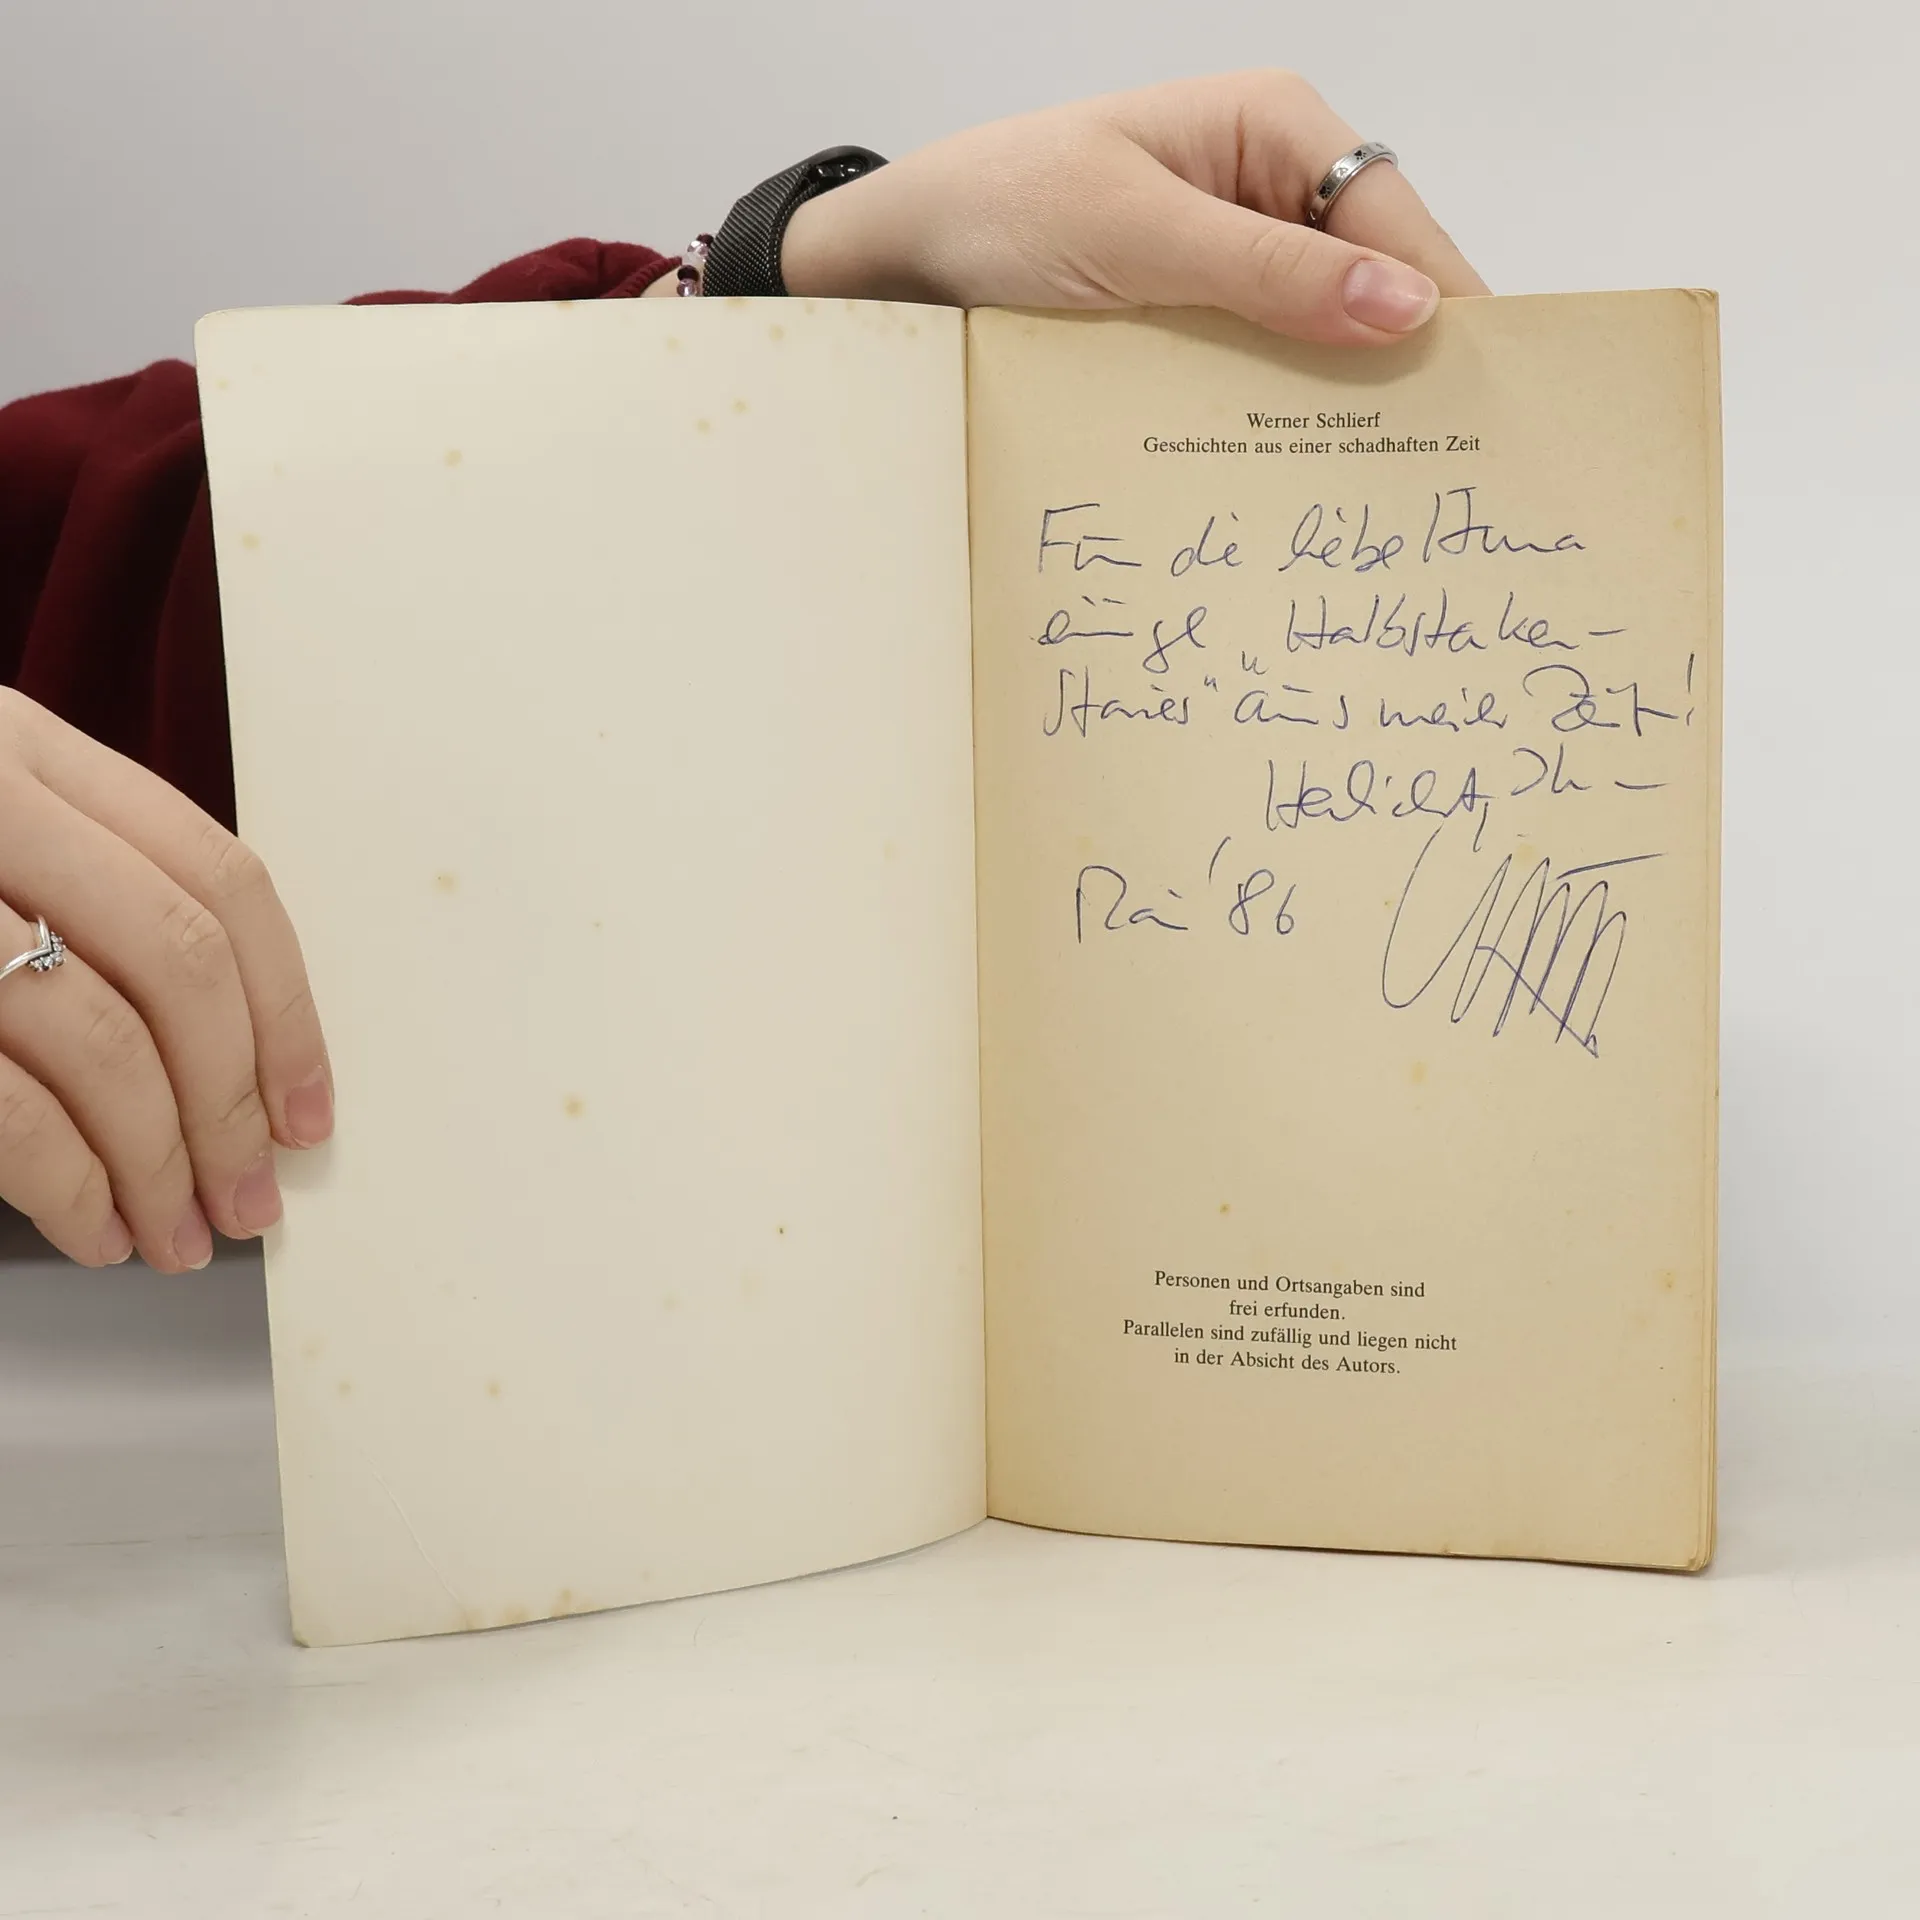 Werner Schlierf
Geschichten aus einer schadhaften Zeit
Für die liebe
einige „Halbstarken-
Stories" aus meiner Zeit!
Herzlichst, Ihr
Mai '86
Personen und Ortsangaben sind
frei erfunden.
Parallelen sind zufällig und liegen nicht
in der Absicht des Autors.